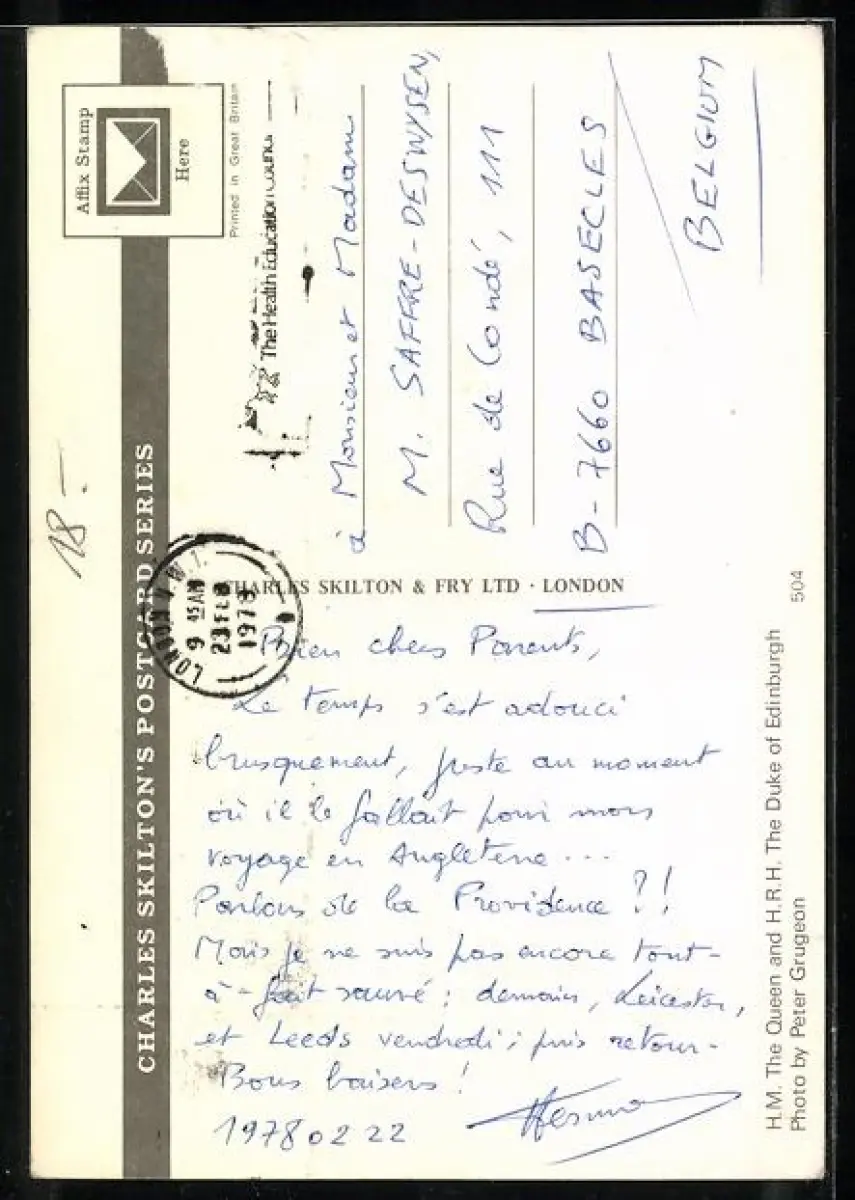 CHARLES SKILTON'S POSTCARD SERIES
Affix Stamp
Here
Printed in Great Britain
18.-
The Health Education Council
LONDON W.1.
9 45 AM
23 FEB
1978
à Monsieur et Madame
M. SAFFRE-DESWYSEN,
Rue de Condé, 111
B-7660 BASECLES
BELGIUM
CHARLES SKILTON & FRY LTD · LONDON
Bien chers Parents,
Le temps s'est adouci
brusquement, juste au moment
où il le fallait pour mon
voyage en Angleterre...
Parlons de la Providence ?!
Mais je ne suis pas encore tout-
à-fait sauvé : demain, Leicester,
et Leeds vendredi ; puis retour.
Bons baisers !
19780222
H.M. The Queen and H.R.H. The Duke of Edinburgh
Photo by Peter Grugeon
504